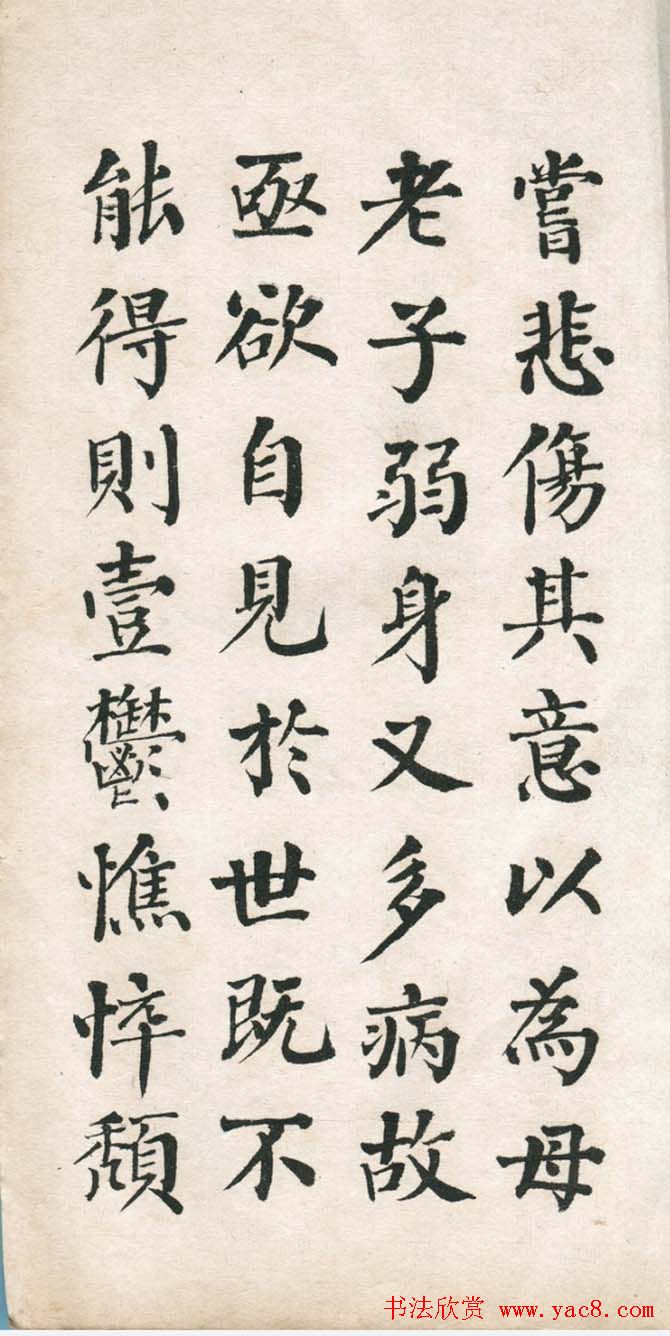 嘗悲傷其意以為母
老子弱身又多病故
亟欲自見於世既不
能得則壹鬱憔悴頹
书法欣赏 www.yac8.com